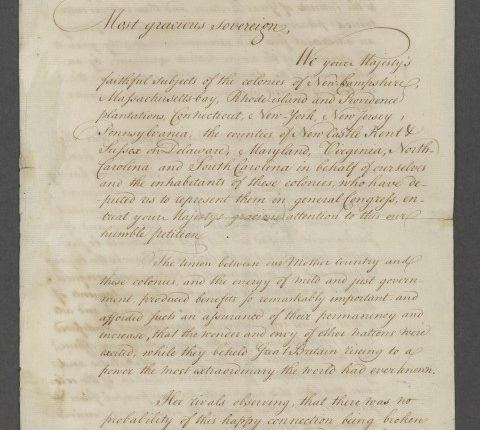 Most gracious Sovereign,
We your Majesty's
faithful subjects of the colonies of New-hampshire,
Massachusetts-bay, Rhode island and Providence
plantations, Connecticut, New-York, New Jersey,
Pennsylvania, the counties of New Castle Kent &
Sussex on Delaware, Maryland, Virginia, North-
Carolina and South Carolina in behalf of ourselves
and the inhabitants of these colonies, who have de-
puted us to represent them in general Congress, en-
treat your Majestys gracious attention to this our
humble petition.
The union between our Mother Country and
these colonies, and the energy of mild and just govern-
ment, produced benefits so remarkably important and
afforded such an assurance of their permanency and
increase, that the wonder and envy of other nations were
excited, while they beheld Great Britain riseing to a
power the most extraordinary the world had ever known.
Her rivals observing, that there was no
probability of this happy connection being broken